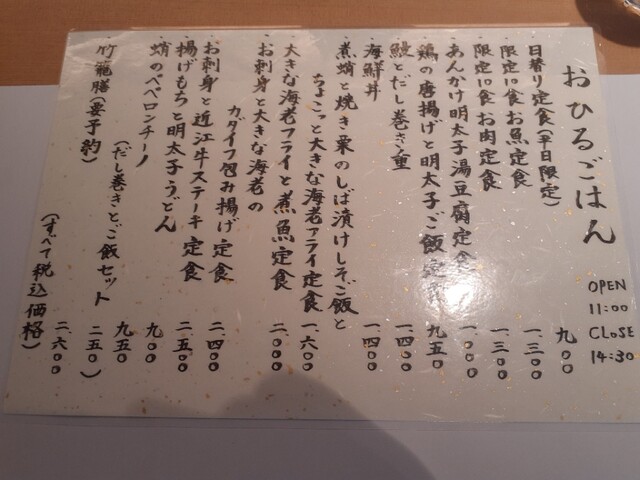 おひるごはん
OPEN
11:00
CLOSE
14:30
日替り定食(平日限定) 九〇〇
限定10食 お魚定食 一、三〇〇
限定10食 お肉定食 一、三〇〇
あんかけ明太子湯豆腐定食 一、〇〇〇
鶏の唐揚げと明太子ご飯定食 九五〇
鰻とだし巻き重 一、四〇〇
海鮮丼 一、四〇〇
煮蛸と焼き栗のしば漬けしそご飯と
ちょこっと大きな海老フライ定食 一、六〇〇
大きな海老フライと煮魚定食 二、〇〇〇
お刺身と大きな海老の
カダイフ包み揚げ定食 二、四〇〇
お刺身と近江牛ステーキ定食 二、五〇〇
揚げもちと明太子うどん 九〇〇
蛸のペペロンチーノ 九五〇
(だし巻きとご飯セット 二五〇)
竹籠膳(要予約) 二、六〇〇
(すべて税込価格)